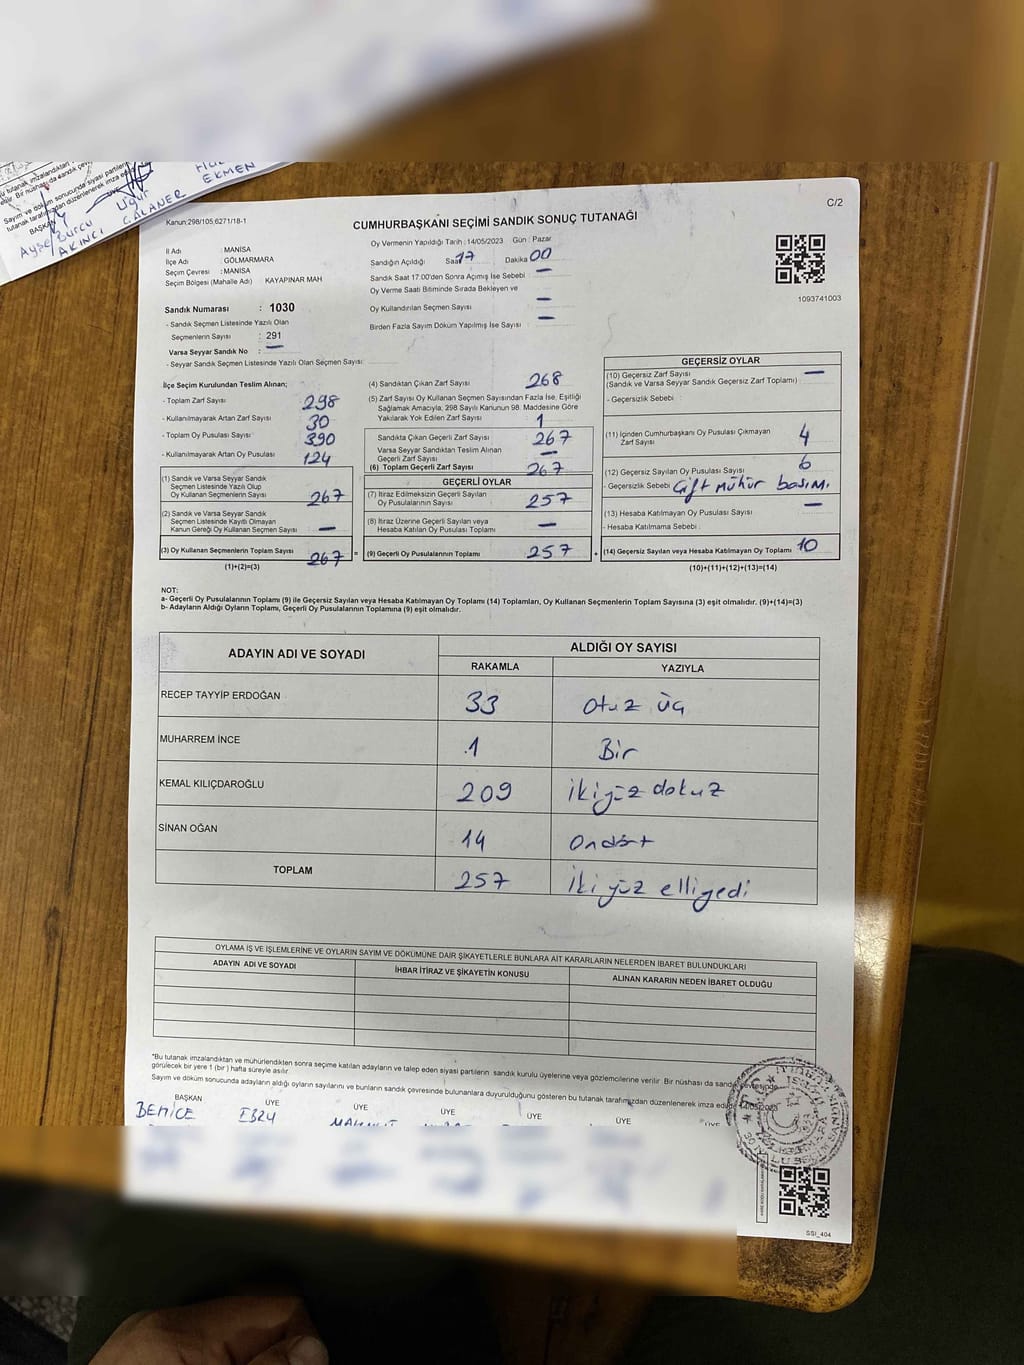 EKMEN
Uğur
CALANER
BAŞKAN
Ayşe Burcu
AKINCI
Kanun:298/105,6271/18-1
CUMHURBAŞKANI SEÇİMİ SANDIK SONUÇ TUTANAĞI
C/2
İl Adı : MANİSA
İlçe Adı : GÖLMARMARA
Seçim Çevresi : MANİSA
Seçim Bölgesi (Mahalle Adı) KAYAPINAR MAH
Oy Vermenin Yapıldığı Tarih : 14/05/2023 Gün : Pazar
Sandığın Açıldığı Saat 17 Dakika 00
Sandık Saat 17:00'den Sonra Açımış İse Sebebi —
Oy Verme Saati Bitiminde Sırada Bekleyen ve
Oy Kullandırılan Seçmen Sayısı —
Birden Fazla Sayım Döküm Yapılmış İse Sayısı —
1093741003
Sandık Numarası : 1030
- Sandık Seçmen Listesinde Yazılı Olan
Seçmenlerin Sayısı : 291
Varsa Seyyar Sandık No : —
- Seyyar Sandık Seçmen Listesinde Yazılı Olan Seçmen Sayısı:
İlçe Seçim Kurulundan Teslim Alınan;
- Toplam Zarf Sayısı 298
- Kullanılmayarak Artan Zarf Sayısı 30
- Toplam Oy Pusulası Sayısı 390
- Kullanılmayarak Artan Oy Pusulası 124
(1) Sandık ve Varsa Seyyar Sandık
Seçmen Listesinde Yazılı Olup
Oy Kullanan Seçmenlerin Sayısı 267
(2) Sandık ve Varsa Seyyar Sandık
Seçmen Listesinde Kayıtlı Olmayan
Kanun Gereği Oy Kullanan Seçmen Sayısı —
(3) Oy Kullanan Seçmenlerin Toplam Sayısı 267 =
(1)+(2)=(3)
(4) Sandıktan Çıkan Zarf Sayısı 268
(5) Zarf Sayısı Oy Kullanan Seçmen Sayısından Fazla İse, Eşitliği
Sağlamak Amacıyla; 298 Sayılı Kanunun 98. Maddesine Göre
Yakılarak Yok Edilen Zarf Sayısı 1
Sandıkta Çıkan Geçerli Zarf Sayısı 267
Varsa Seyyar Sandıktan Teslim Alınan
Geçerli Zarf Sayısı —
(6) Toplam Geçerli Zarf Sayısı 267
GEÇERLİ OYLAR
(7) İtiraz Edilmeksizin Geçerli Sayılan
Oy Pusulalarının Sayısı 257
(8) İtiraz Üzerine Geçerli Sayılan veya
Hesaba Katılan Oy Pusulası Toplamı —
(9) Geçerli Oy Pusulalarının Toplamı 257 +
GEÇERSİZ OYLAR
(10) Geçersiz Zarf Sayısı —
(Sandık ve Varsa Seyyar Sandık Geçersiz Zarf Toplamı)
- Geçersizlik Sebebi :
(11) İçinden Cumhurbaşkanı Oy Pusulası Çıkmayan
Zarf Sayısı 4
(12) Geçersiz Sayılan Oy Pusulası Sayısı 6
- Geçersizlik Sebebi Çift mühür basımı
(13) Hesaba Katılmayan Oy Pusulası Sayısı —
- Hesaba Katılmama Sebebi :
(14) Geçersiz Sayılan veya Hesaba Katılmayan Oy Toplamı 10
(10)+(11)+(12)+(13)=(14)
NOT:
a- Geçerli Oy Pusulalarının Toplamı (9) ile Geçersiz Sayılan veya Hesaba Katılmayan Oy Toplamı (14) Toplamları, Oy Kullanan Seçmenlerin Toplam Sayısına (3) eşit olmalıdır. (9)+(14)=(3)
b- Adayların Aldığı Oyların Toplamı, Geçerli Oy Pusulalarının Toplamına (9) eşit olmalıdır.
ADAYIN ADI VE SOYADI ALDIĞI OY SAYISI
RAKAMLA YAZIYLA
RECEP TAYYİP ERDOĞAN 33 Otuz üç
MUHARREM İNCE 1 Bir
KEMAL KILIÇDAROĞLU 209 ikiyüz dokuz
SİNAN OĞAN 14 Ondört
TOPLAM 257 İki yüz elliyedi
OYLAMA İŞ VE İŞLEMLERİNE VE OYLARIN SAYIM VE DÖKÜMÜNE DAİR ŞİKAYETLERLE BUNLARA AİT KARARLARIN NELERDEN İBARET BULUNDUKLARI
ADAYIN ADI VE SOYADI İHBAR İTİRAZ VE ŞİKAYETİN KONUSU ALINAN KARARIN NEDEN İBARET OLDUĞU
*Bu tutanak imzalandıktan ve mühürlendikten sonra seçime katılan adayların ve talep eden siyasi partilerin sandık kurulu üyelerine veya gözlemcilerine verilir. Bir nüshası da sandık çevresinde
görülecek bir yere 1 (bir) hafta süreyle asılır.
Sayım ve döküm sonucunda adayların aldığı oyların sayılarını ve bunların sandık çevresinde bulunanlara duyurulduğunu gösteren bu tutanak tarafımızdan düzenlenerek imza
BAŞKAN ÜYE ÜYE ÜYE ÜYE ÜYE ÜYE
BEHİCE EBRU
SSİ_404